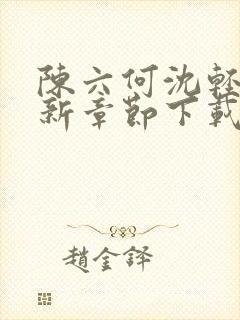 陳六何沈輕
新章節下載
趙金鐸